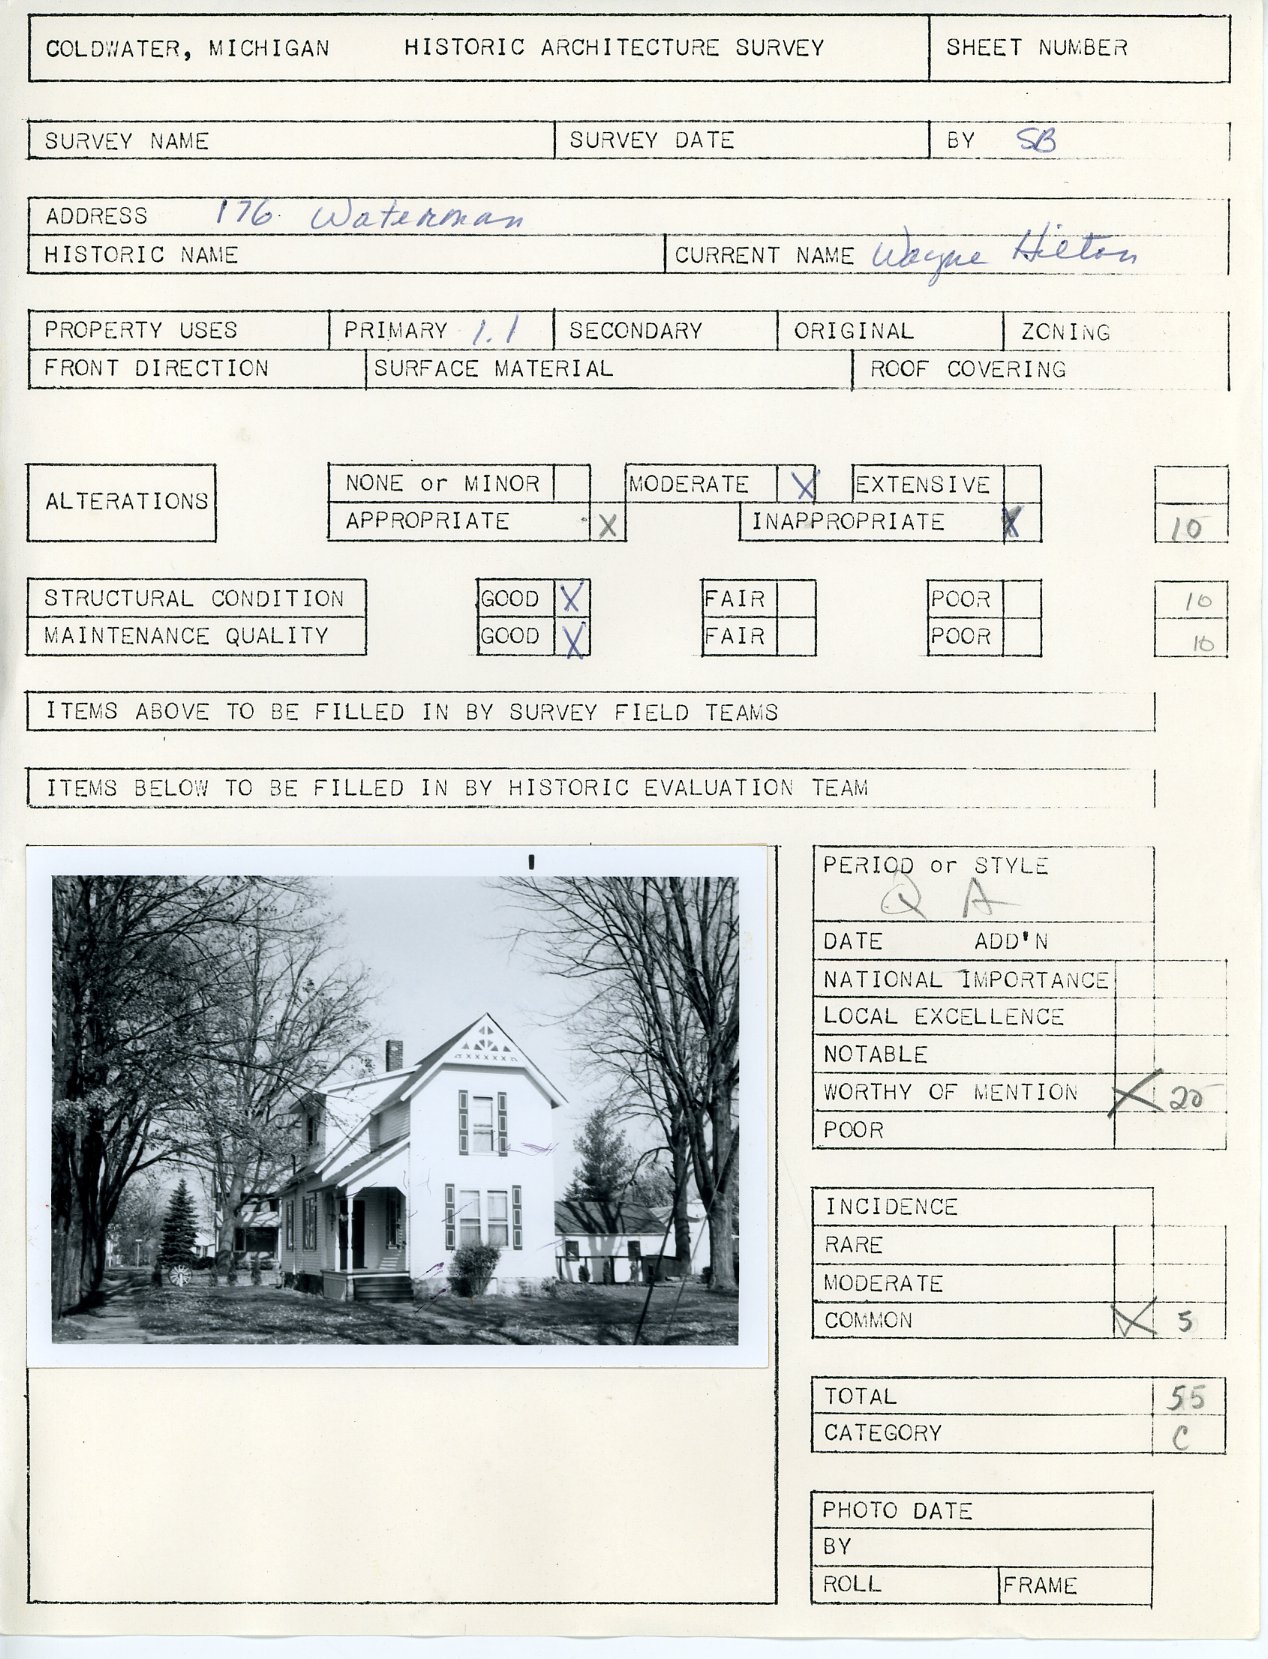 COLDWATER, MICHIGAN HISTORIC ARCHITECTURE SURVEY SHEET NUMBER
SURVEY NAME SURVEY DATE BY SB
ADDRESS 176 Waterman
HISTORIC NAME CURRENT NAME Wayne Hilton
PROPERTY USES PRIMARY 1.1 SECONDARY ORIGINAL ZONING
FRONT DIRECTION SURFACE MATERIAL ROOF COVERING
ALTERATIONS NONE or MINOR MODERATE X EXTENSIVE
APPROPRIATE X INAPPROPRIATE X 10
STRUCTURAL CONDITION GOOD X FAIR POOR 10
MAINTENANCE QUALITY GOOD X FAIR POOR 10
ITEMS ABOVE TO BE FILLED IN BY SURVEY FIELD TEAMS
ITEMS BELOW TO BE FILLED IN BY HISTORIC EVALUATION TEAM
PERIOD or STYLE
Q A
DATE ADD'N
NATIONAL IMPORTANCE
LOCAL EXCELLENCE
NOTABLE
WORTHY OF MENTION X 20
POOR
INCIDENCE
RARE
MODERATE
COMMON X 5
TOTAL 55
CATEGORY C
PHOTO DATE
BY
ROLL FRAME